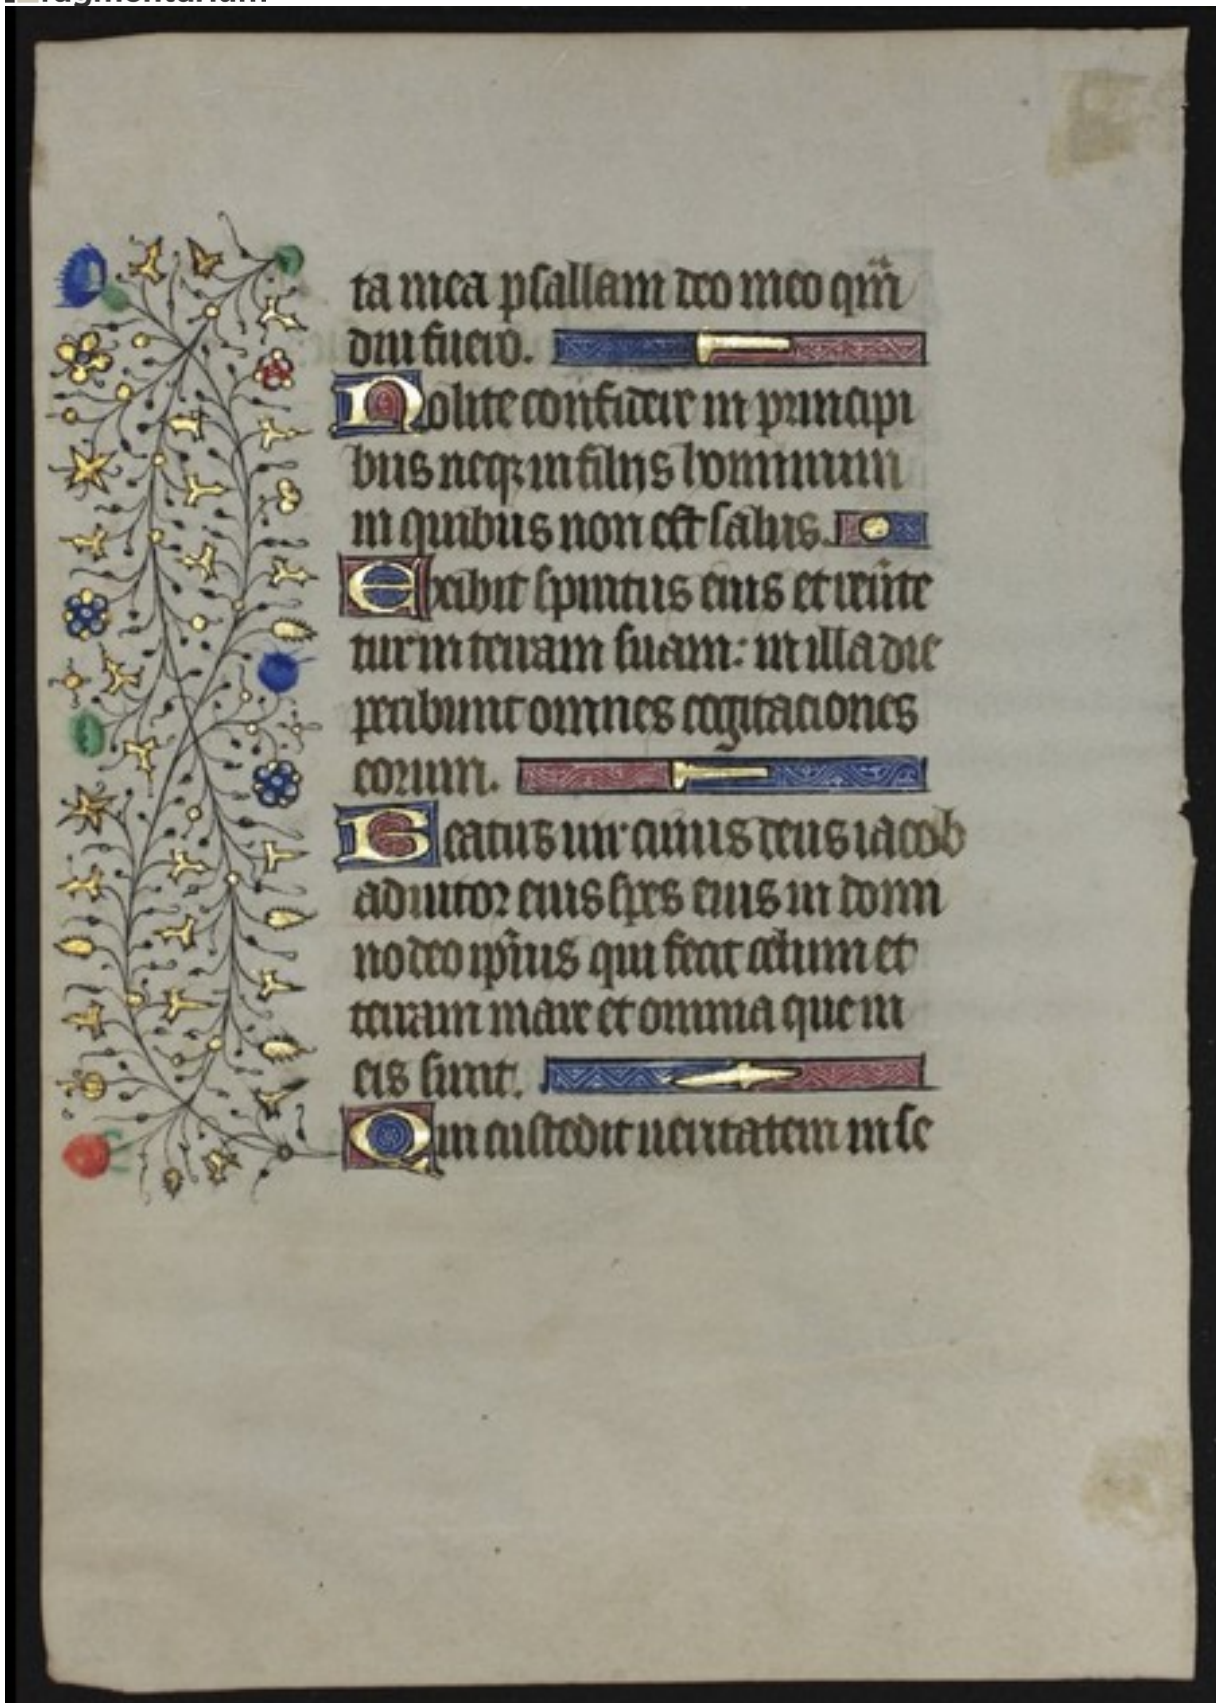 ragmentarium
ta mea psallam deo meo qm̄
diu fuero.
Nolite confidere in principi
bus neqꝫ in filijs hominum
in quibus non est salus.
Exibit spiritus eius et reũte
tur in terram suam: in illa die
peribunt omnes cogitaciones
eorum.
Beatus uir cuius deus iacob
adiutor eius spes eius in domi
no deo ipīus qui fecit celum et
terram mare et omnia que in
eis sunt.
Qui custodit ueritatem in se